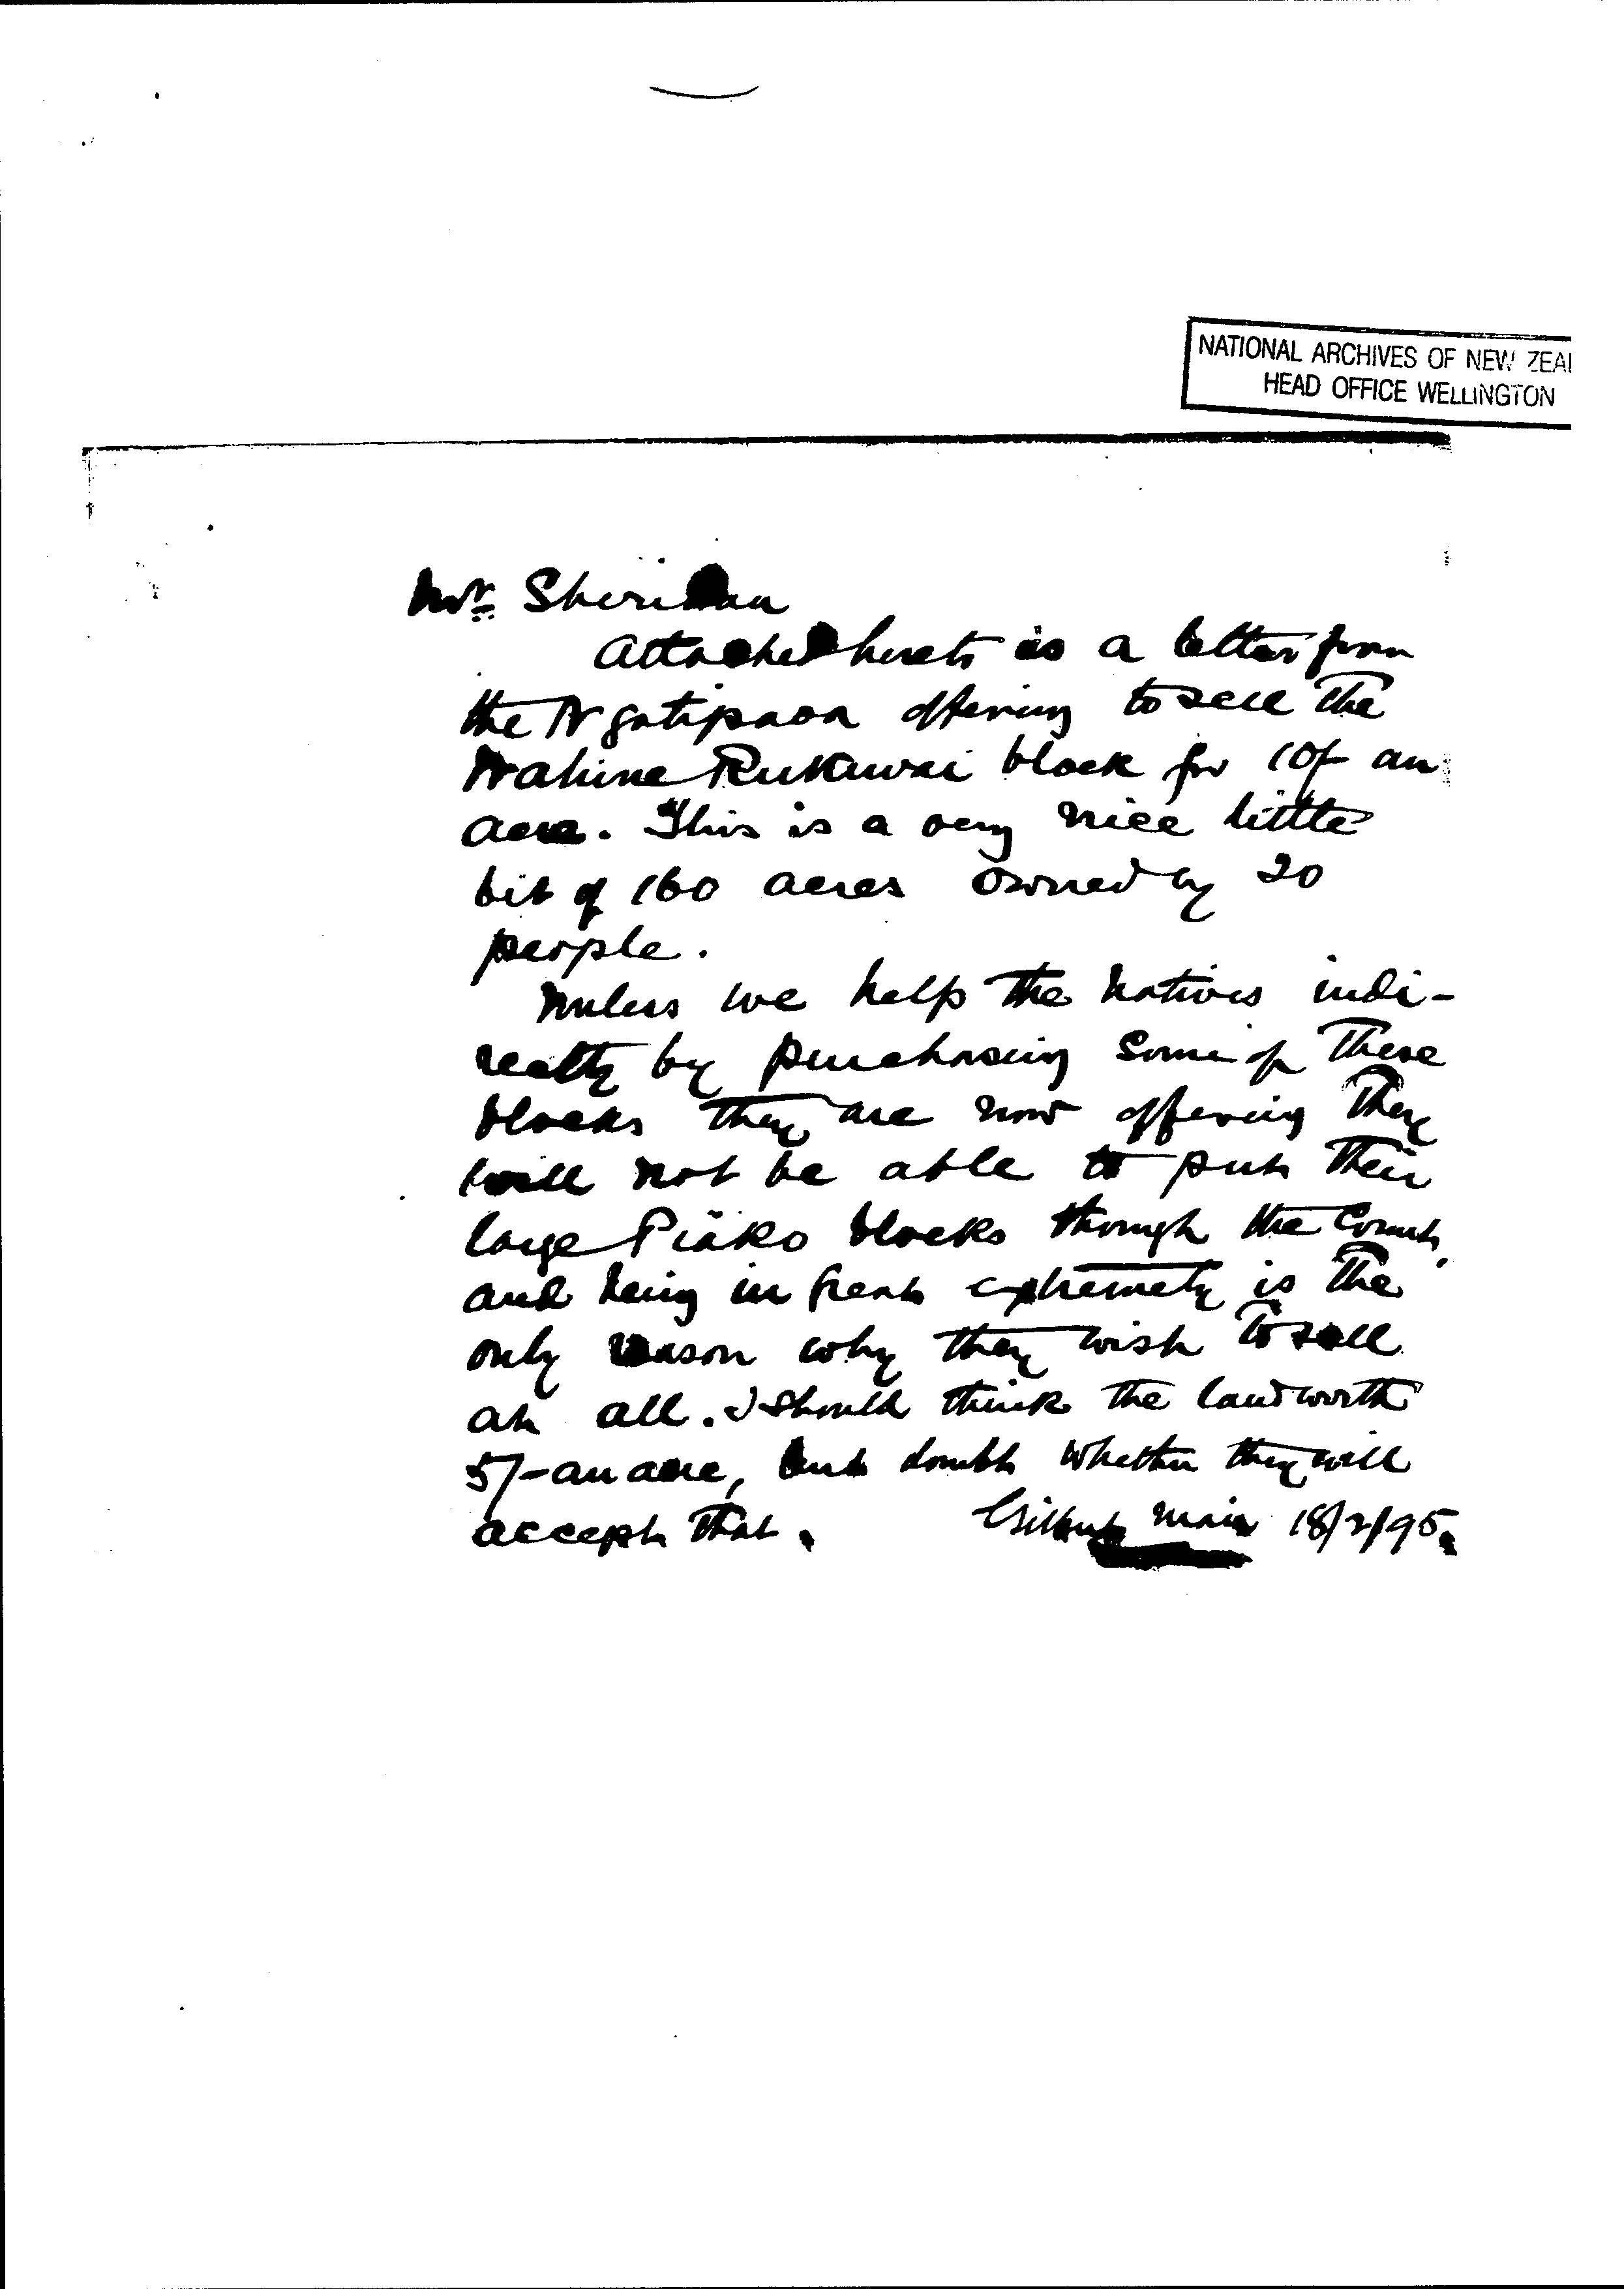 NATIONAL ARCHIVES OF NEW ZEAL
HEAD OFFICE WELLINGTON
Mr. Sheridan
Attached hereto is a letter from
the Ngatipaoa offering to sell the
Wahine Rukuwai block for 10/- an
acre. This is a very nice little
bit of 160 acres owned by 20
people.
Unless we help the natives indi-
rectly by purchasing some of these
blocks they are now offering they
will not be able to put their
large Piako blocks through the Court,
and being in great extremety is the
only reason why they wish to sell
at all. I should think the land worth
5/- an acre, but doubt whether they will
accept that. Gilbert Mair 18/2/95.